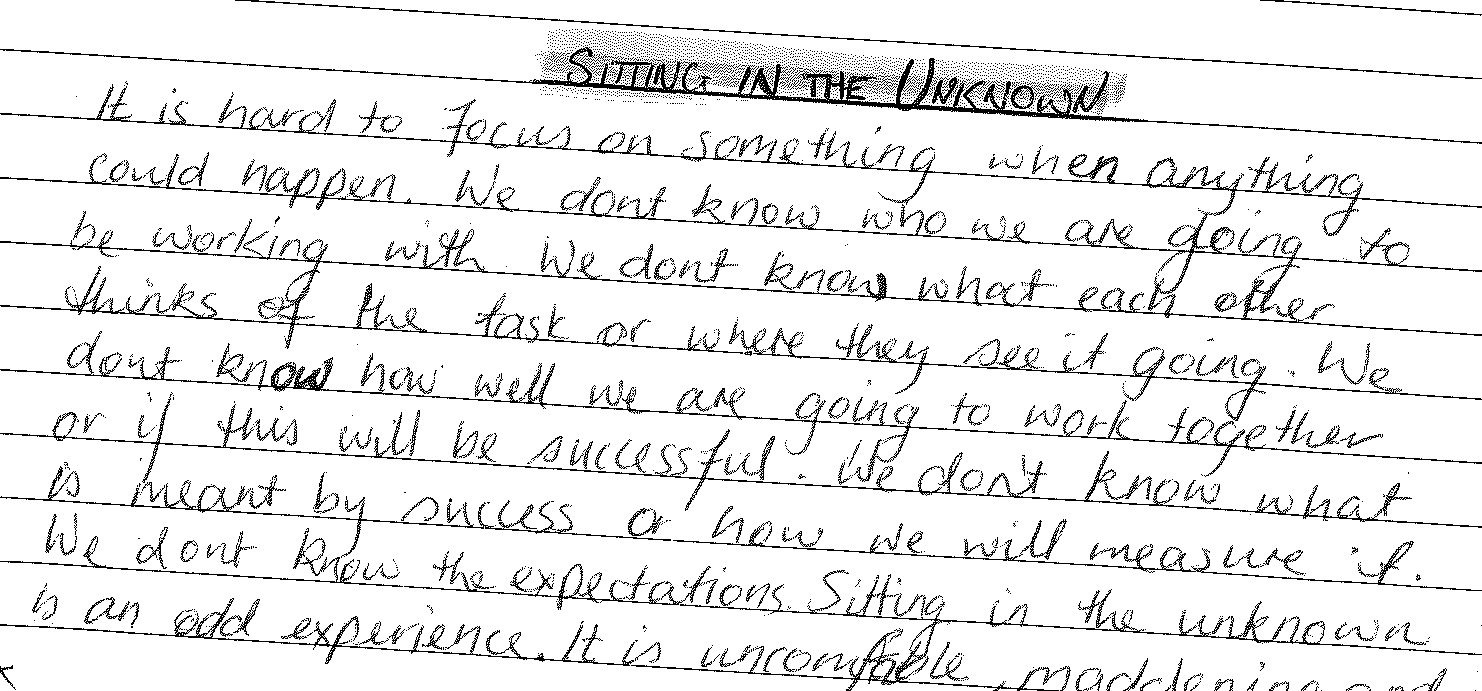 SITTING IN THE UNKNOWN
It is hard to focus on something when anything
could happen. We dont know who we are going to
be working with. We dont know what each other
thinks of the task or where they see it going. We
dont know how well we are going to work together
or if this will be successful. We don't know what
is meant by success or how we will measure it.
We dont know the expectations. Sitting in the unknown
is an odd experience. It is , maddening and